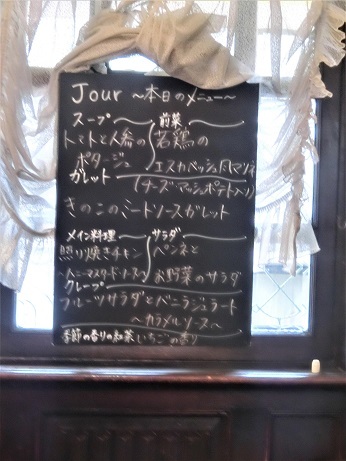 Jour ～本日のメニュー～
スープ～
トマトと人参の
ポタージュ
前菜～
若鶏の
エスカベッシュ風マリネ
ガレット～
(チーズ・マッシュポテト入り)
きのこのミートソースガレット
メイン料理～
照り焼きチキン
～ハニーマスタードソース～
サラダ～
ペンネと
お野菜のサラダ
クレープ～
フルーツサラダとバニラジェラート
～カラメルソース～
季節の香りの紅茶 いちごの香り